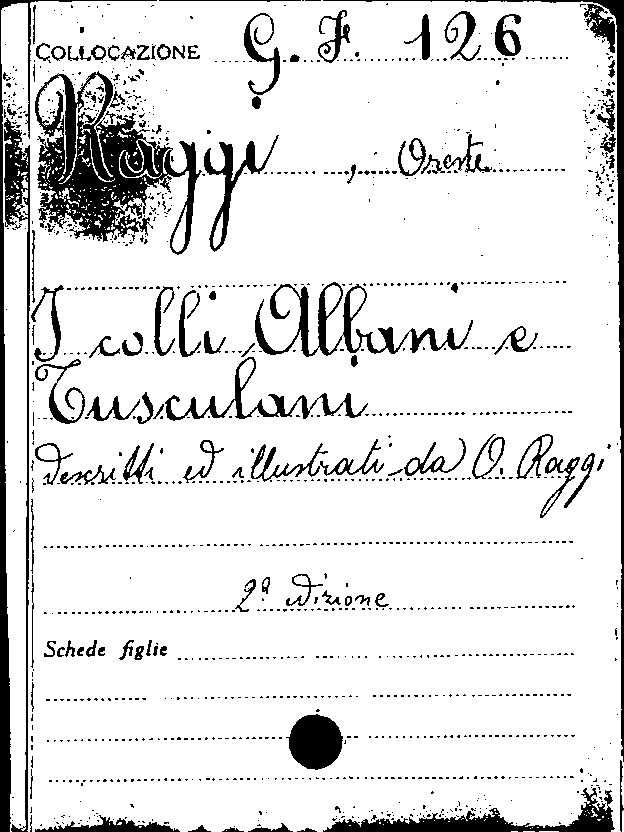 COLLOCAZIONE G. F. 126
Raggi, Oreste
I colli Albani e
Tusculani
descritti ed illustrati da O. Raggi
2ª edizione
Schede figlie